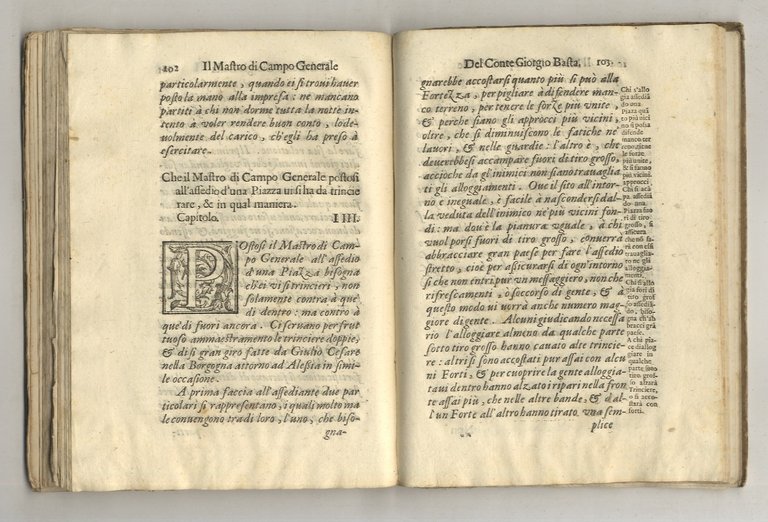 102 Il Mastro di Campo Generale
particolarmente, quando ei si trovi haver
posto la mano alla impresa: ne mancano
partiti à chi non dorme tutta la notte in-
tento à voler rendere buon conto, lode-
volmente del carico, ch'egli hà preso à
esercitare.
Che il Mastro di Campo Generale postosi
all'assedio d'una Piazza vi si ha da trincie
rare, & in qual maniera.
Capitolo. IIII.
POstosi il Mastro di Cam-
po Generale all'assedio
d'una Piazza bisogna
ch'ei vi si trincieri, non
solamente contra à que'
di dentro: ma contrò à
que' di fuori ancora. Ci servano per frut
tuoso ammaestramento le trinciere doppie,
& di sì gran giro fatte da Giulio Cesare
nella Borgogna attorno ad Alesita in simi-
le occasione.
A prima faccia all'assediante due par
ticolari si rappresentano, i quali molto ma
le convengono tra di loro, l'uno, che biso-
gna-
Del Conte Giorgio Basta. 103
gnarebbe accostarsi quanto più si può alla
Fortezza, per pigliare à difendere man-
co terreno, per tenere le forze più unite,
& perche siano gli approcci più vicini,
oltre, che si diminuiscono le fatiche ne'
lavori, & nelle guardie: l'altro è, che
deverebbesi accampare fuori di tiro grosso,
accioche da gl'inimici non siano travaglia
ti gli alloggiamenti. Ove il sito all'intor-
no è ineguale, è facile à nascondersi dal-
la veduta dell'inimico ne' più vicini fon-
di: ma dov'è la pianura uguale, à chi
vuol porsi fuori di tiro grosso, converrà
abbracciare gran paese per fare l'assedio
stretto, cioè per assicurarsi di ogn'intorno
sì che non entri pur'un messaggiero, non che
rifrescamenti, ò soccorso di gente, & à
questo modo vi vorrà anche numero mag-
giore di gente. Alcuni giudicando necessa
rio l'alloggiare almeno da qualche parte
sotto tiro grosso hanno cavato alte trincie-
re: altri si sono accostati pur assai con alcu
ni Forti, & per cuoprire la gente alloggia-
tavi dentro hanno alzato i ripari nella fron
te assai più, che nelle altre bande, & dal-
l'un Forte all'altro hanno tirato una sem-
plice
Chi s'allo
gia assedià
do una
Piazza quà
to più vici
no si possa
difende
manco ter
reno, tiene
le forze
più unite,
& si fanno
più vicini.
approcci
Chi si acà
pa assediā
do una.
Piazza fuo
ri di tiro
grosso, si
assicura
che nō sa
rà con essi
travaglia-
to ne gli
alloggia-
menti.
Chi si allo
gia fori di
tiro grosso
assedian-
do, biso-
gna ch'ab
bracci grā
paese.
A chi pia-
ce d'allog
giare in
qualche
parte sotto
tiro gros-
so alzarà
Trinciere,
ò si aco-
starà con
forti.